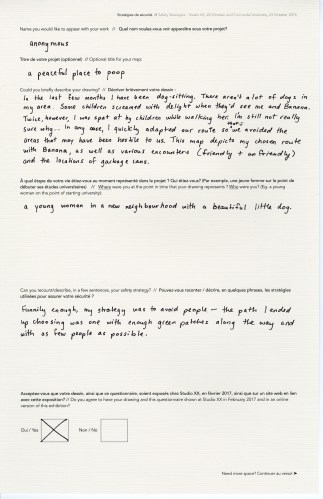 Stratégies de sécurité // Safety Strategies
Name you would like to appear with your work // Quel nom voulez-vous voir apparaître sous votre projet?
anonymous
Titre de votre projet (optionnel) // Optional title for your map:
a peaceful place to poop
Could you briefly describe your drawing? // Décrivez brièvement votre dessin :
In the last few months I have been dog-sitting. There aren't a lot of dogs in
my area. Some children screamed with delight when they'd see me and Banana.
Twice, however, I was spat at by children while walking her; I'm still not really
sure why... In any case, I quickly adapted our route so that we avoided the
areas that may have been hostile to us. This map depicts my chosen route
with Banana, as well as various encounters (friendly + unfriendly)
and the locations of garbage cans.
À quel étape de votre vie étiez-vous au moment représenté dans le projet ? Qui étiez-vous? (Par exemple, une jeune femme sur le point de
débuter ses études universitaires) // Where were you at the point in time that your drawing represents ? Who were you? (Eg. a young
woman on the point of starting university).
a young woman in a new neighbourhood with a beautiful little dog.
Can you recount/describe, in a few sentences, your safety strategy? // Pouvez-vous raconter / décrire, en quelques phrases, les stratégies
utilisées pour assurer votre sécurité ?
Funnily enough, my strategy was to avoid people — the path I ended
up choosing was one with enough green patches along the way and
with as few people as possible.
Acceptez-vous que votre dessin, ainsi que ce questionnaire, soient exposés chez Studio XX, en février 2017, ainsi que sur un site web en lien
avec cette exposition? // Do you agree to have your drawing and this questionnaire shown at Studio XX in February 2017 and in an online
version of this exhibition?
Oui / Yes
Non / No
Need more space? Continuer au verso! ➤